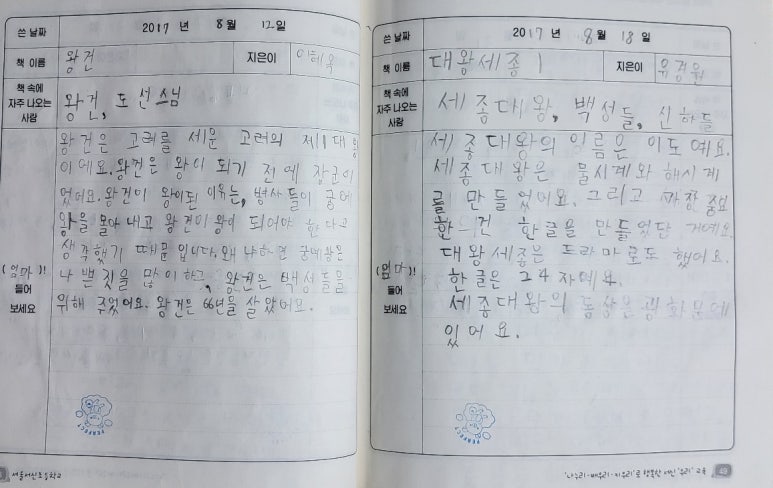 쓴 날짜 2017 년 8 월 12 일
책 이름 왕건 지은이 이혜옥
책 속에
자주 나오는
사람
왕건, 도선스님
왕건은 고려를 세운 고려의 제1대 왕
이에요. 왕건은 왕이 되기 전에 장군이
었어요. 왕건이 왕이된 이유는, 병사들이 궁예
왕을 몰아 내고 왕건이 왕이 되어야 한다고
생각했기 때문 입니다. 왜냐하면 궁예왕은
나쁜짓을 많이하고, 왕건은 백성들을
위해 주었어요. 왕건은 66년을 살았어요.
(엄마)!
들어
보세요
PERFECT
서울서신초등학교
쓴 날짜 2017 년 8 월 18 일
책 이름 대왕세종 1 지은이 유경원
책 속에
자주 나오는
사람
세종대왕, 백성들, 신하들
세종대왕의 이름은 이도예요.
세종대왕은 물시계와 해시계
를 만들었어요. 그리고 가장 중요
한 건 한글을 만들었단 거예요.
대왕세종은 드라마로도 했어요.
한글은 24자예요.
세종대왕의 동상은 광화문에
있어요.
(엄마)!
들어
보세요
PERFECT
'나누리·배우리·키우리'로 행복한 서신 '우리' 교육 49